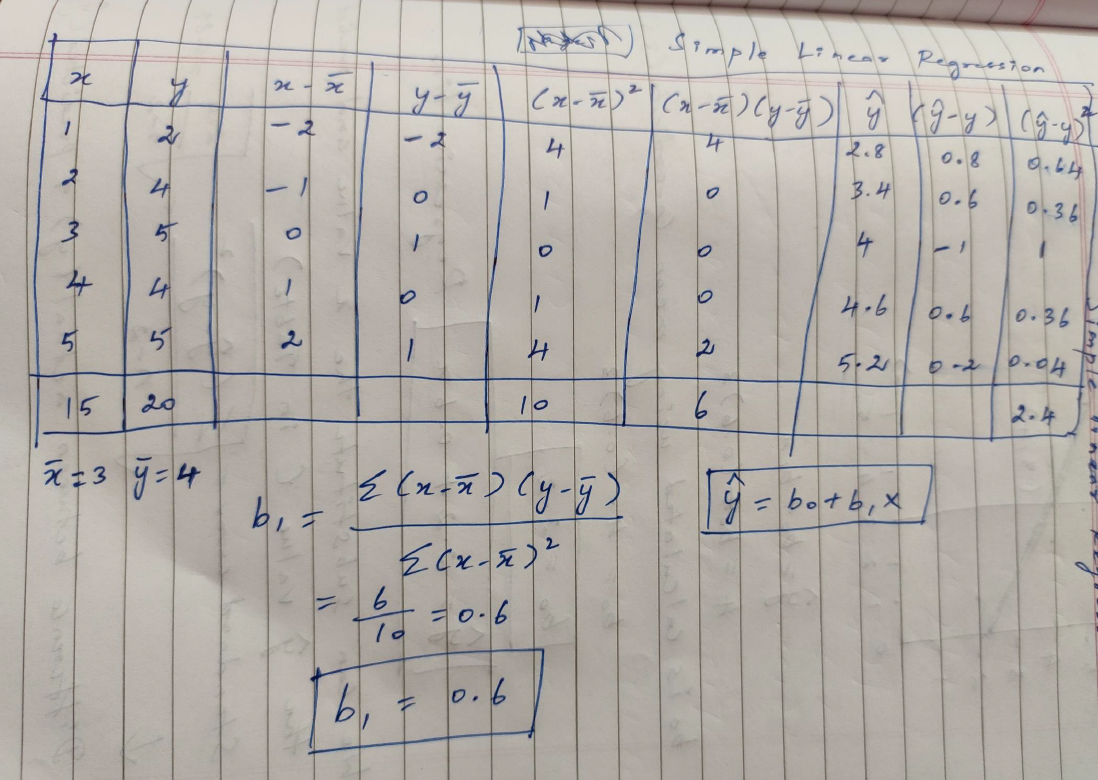 Simple Linear Regression
x y x-x̄ y-ȳ (x-x̄)² (x-x̄)(y-ȳ) ŷ (ŷ-y) (ŷ-y)²
1 2 -2 -2 4 4 2.8 0.8 0.64
2 4 -1 0 1 0 3.4 0.6 0.36
3 5 0 1 0 0 4 -1 1
4 4 1 0 1 0 4.6 0.6 0.36
5 5 2 1 4 2 5.2 0.2 0.04
15 20 10 6 2.4
x̄=3 ȳ=4
b₁ = Σ(x-x̄)(y-ȳ)
Σ(x-x̄)²
= 6/10 = 0.6
b₁ = 0.6
ŷ = b₀+b₁x
Simple Linear